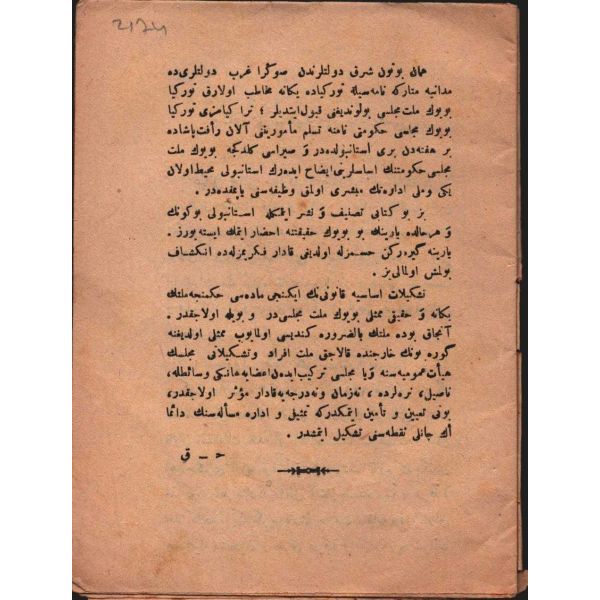 2174
همان بوتون شرق دولتلرندن صوڭرا غرب دولتلری ده
مدانیه متارکه نامه سیله تورکیاده یکانه مخاطب اولارق تورکیا
بویوك ملت مجلسی بولوندیغنی قبول ایتدیلر ؛ تراکیامزی تورکیا
بویوك مجلسی حکومتی نامنه تسلم مأموریتنی آلان رأفت پاشاده
بر هفته دن بری استانبولده در و صیراسی کلدکجه بویوك ملت
مجلسی حکومتنك اساسلرینی ایضاح ایده رك استانبولی محیط اولان
یکی و ملی اداره نك مبشری اولمق وظیفه سنی یاپمقده در .
بز بو کتابی تصنیف و نشر ایتمکله استانبولی بوکونك
و هر حالده یارینك بو بویوك حقیقتنه احضار ایتمك ایسته یورز .
یارینه کیررکن حسمزله اولدیغی قادار فکریمزله ده انکشاف
بولمش اولمالی یز .
تشکیلات اساسیه قانونی نك ایکنجی ماده سی حکمنجه ملتك
یکانه و حقیقی ممثلی بویوك ملت مجلسی در و بویله اولاجقدر .
آنجاق بوده ملتك بالضروره کندیسی اولمایوب ممثلی اولدیغنه
کوره بونك خارجنده قالاجق ملت افراد و تشکیلاتی مجلسك
هیأت عمومیه سنه و یا مجلسی ترکیب ایده ن اعضایه هانکی وسائطله ،
ناصیل ، نره لرده ، نه زمان و نه درجه یه قادار مؤثر اولاجقدر ،
بونی تعیین و تأمین ایتمکدرکه تمثیلی و اداره مسأله سنك دائما
أك جانلی نقطه سنی تشکیل ایتمشدر .
ح ـ ق